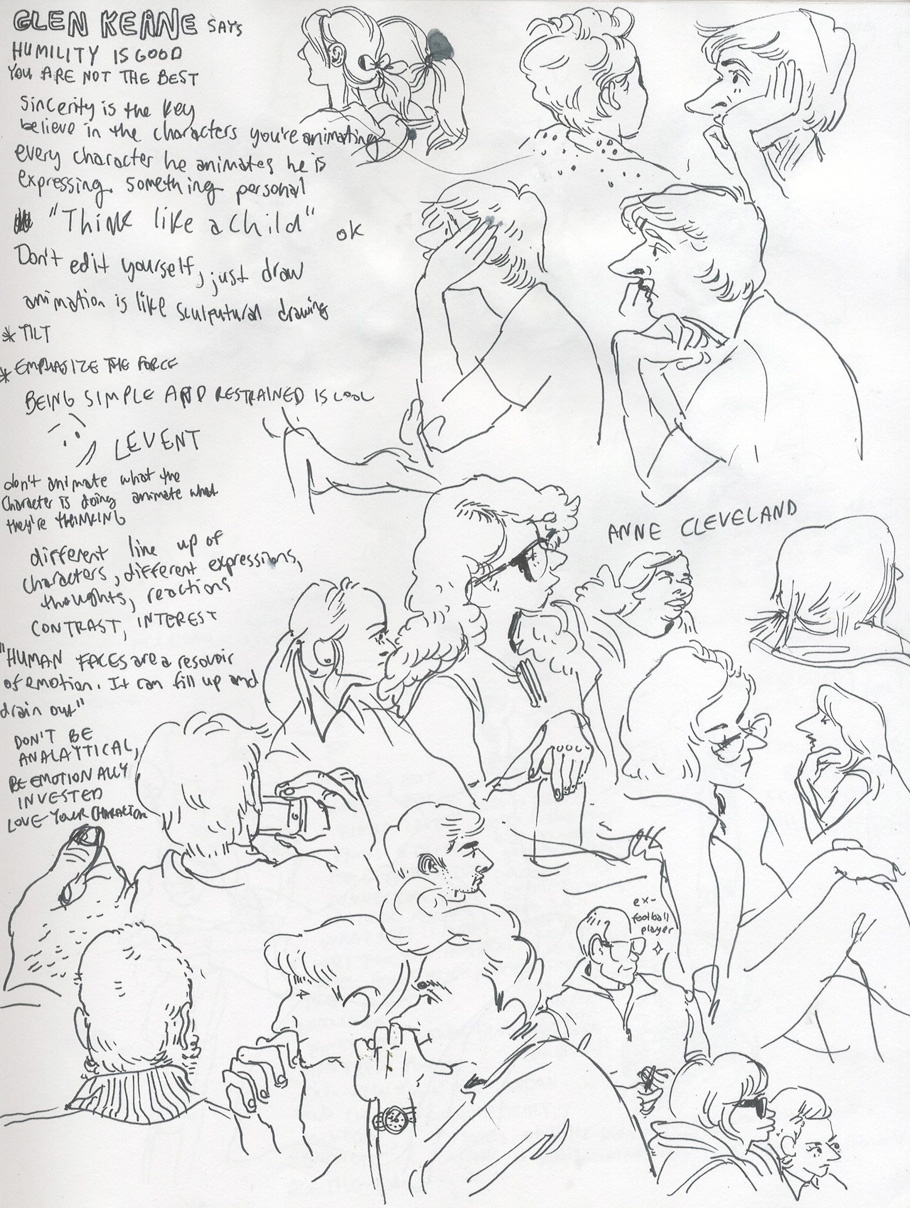 GLEN KEANE SAYS
HUMILITY IS GOOD
YOU ARE NOT THE BEST
Sincerity is the key
believe in the characters you're animating
every character he animates he is
expressing something personal
"Think like a child" ok
Don't edit yourself, just draw
animation is like sculputural drawing
* TILT
* EMPHASIZE THE FORCE
BEING SIMPLE AND RESTRAINED IS COOL
LEVENT
don't animate what the
character is doing animate what
they're THINKING
different line up of
characters, different expressions,
thoughts, reactions
CONTRAST, INTEREST
"HUMAN FACES are a resovoir
of emotion. It can fill up and
drain out"
DON'T BE
ANALAYTICAL,
BE EMOTIONALLY
INVESTED
LOVE YOUR CHARACTER
ANNE CLEVELAND
ex-
football
player